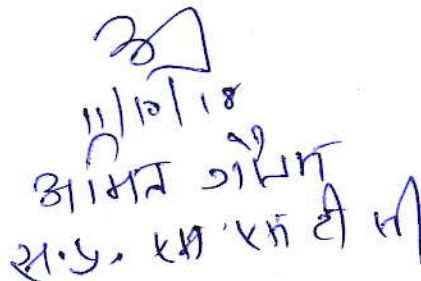 11/10/18
अमित गौतम
स.प्र. एम एम टी सी